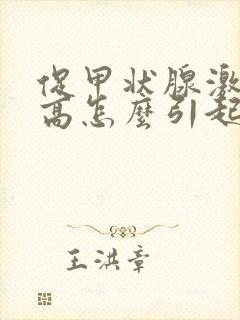 促甲状腺激
高怎麼引起
王洪章